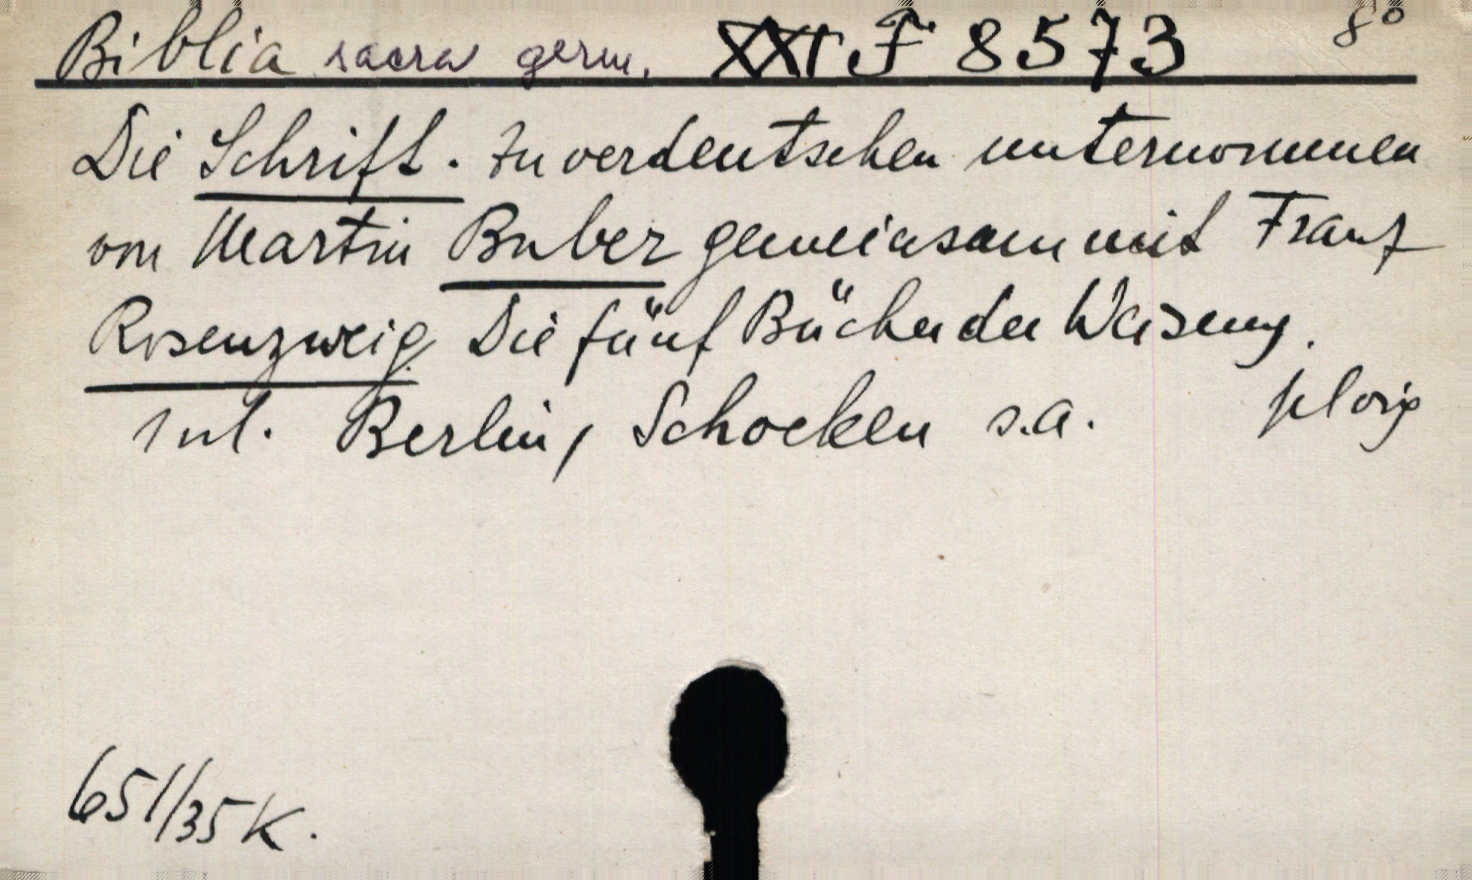 Biblia sacra germ. XXI F 8573 8°
Die Schrift. Zu verdeutschen unternommen
von Martin Buber gemeinsam mit Franz
Rosenzweig Die fünf Bücher der Weisung.
Berlin, Schocken s.a.
651/35 K.